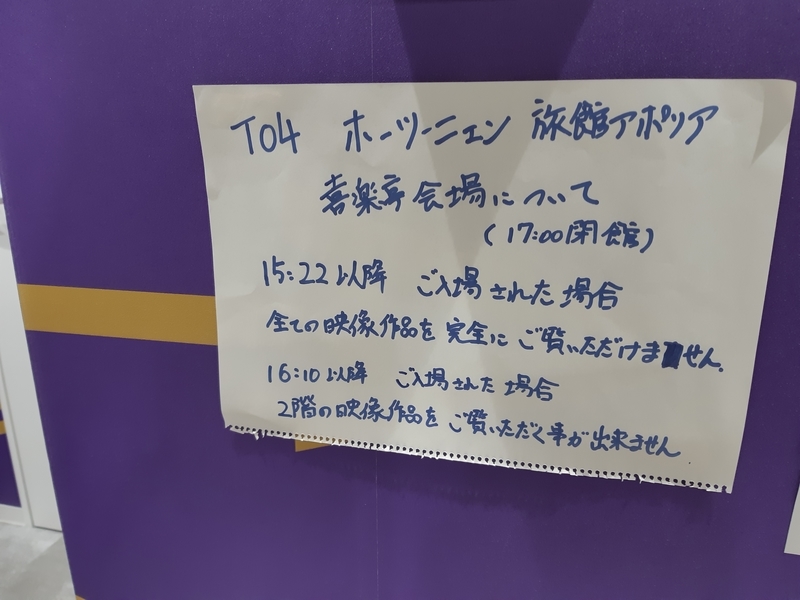 T04 ホーツーニェン 旅館アポリア
喜楽亭会場について
(17:00閉館)
15:22以降 ご入場された場合
全ての映像作品を完全にご覧いただけません。
16:10以降 ご入場された場合
2階の映像作品をご覧いただく事が出来ません